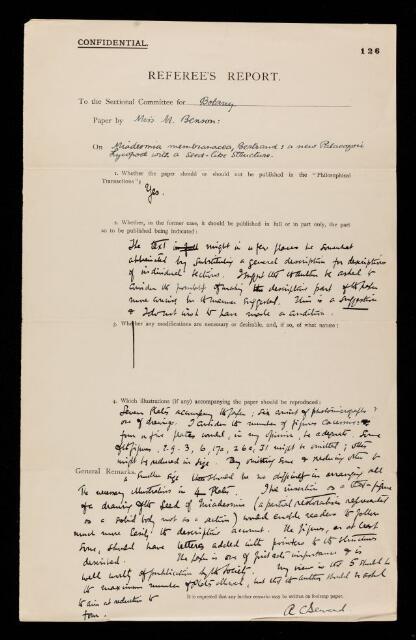 CONFIDENTIAL.
126
REFEREE'S REPORT.
To the Sectional Committee for Botany
Paper by Miss M. Benson:
On Miadesmia membranacea, Bertrand: a new Palaeozoic
Lycopod with a Seed-like Structure.
1. Whether the paper should or should not be published in the "Philosophical
Transactions":
Yes.
2. Whether, in the former case, it should be published in full or in part only, the part
so to be published being indicated:
The text might in a few places be somewhat
abbreviated by substituting a general description for descriptions
of individual sections. I suggest the author be asked to
consider the possibility of making the descriptive part of the paper
more concise in the manner suggested. This is a suggestion
& I do not wish to have made a condition.
3. Whether any modifications are necessary or desirable, and, if so, of what nature:
4. Which illustrations (if any) accompanying the paper should be reproduced:
Seven Plates accompany the paper; six consist of photomicrographs &
one of drawings. I consider the number of figures excessive
four or five plates would, in my opinion, be adequate. Some
of the figures, e.g. 3, 6, 17a, 26c, 31 might be omitted; others
might be reduced in size. By omitting some & reducing others to
a smaller size there should be no difficulty in arranging all
General Remarks.
the necessary illustrations in 4 Plates. The insertion as a text-figure
of a drawing of the seed of Miadesmia (a partial restoration represented
as a solid body not as a section) would enable readers to follow
much more easily the descriptive account. The figures, or at least
some, should have letters added with pointers to the structures
described. The paper is one of great importance & is
well worthy of publication by the Society. My view is that 5 should be
the maximum number of plates allowed, but that the author should be asked
to aim at reduction to
four.
It is requested that any further remarks may be written on foolscap paper.
A C Seward